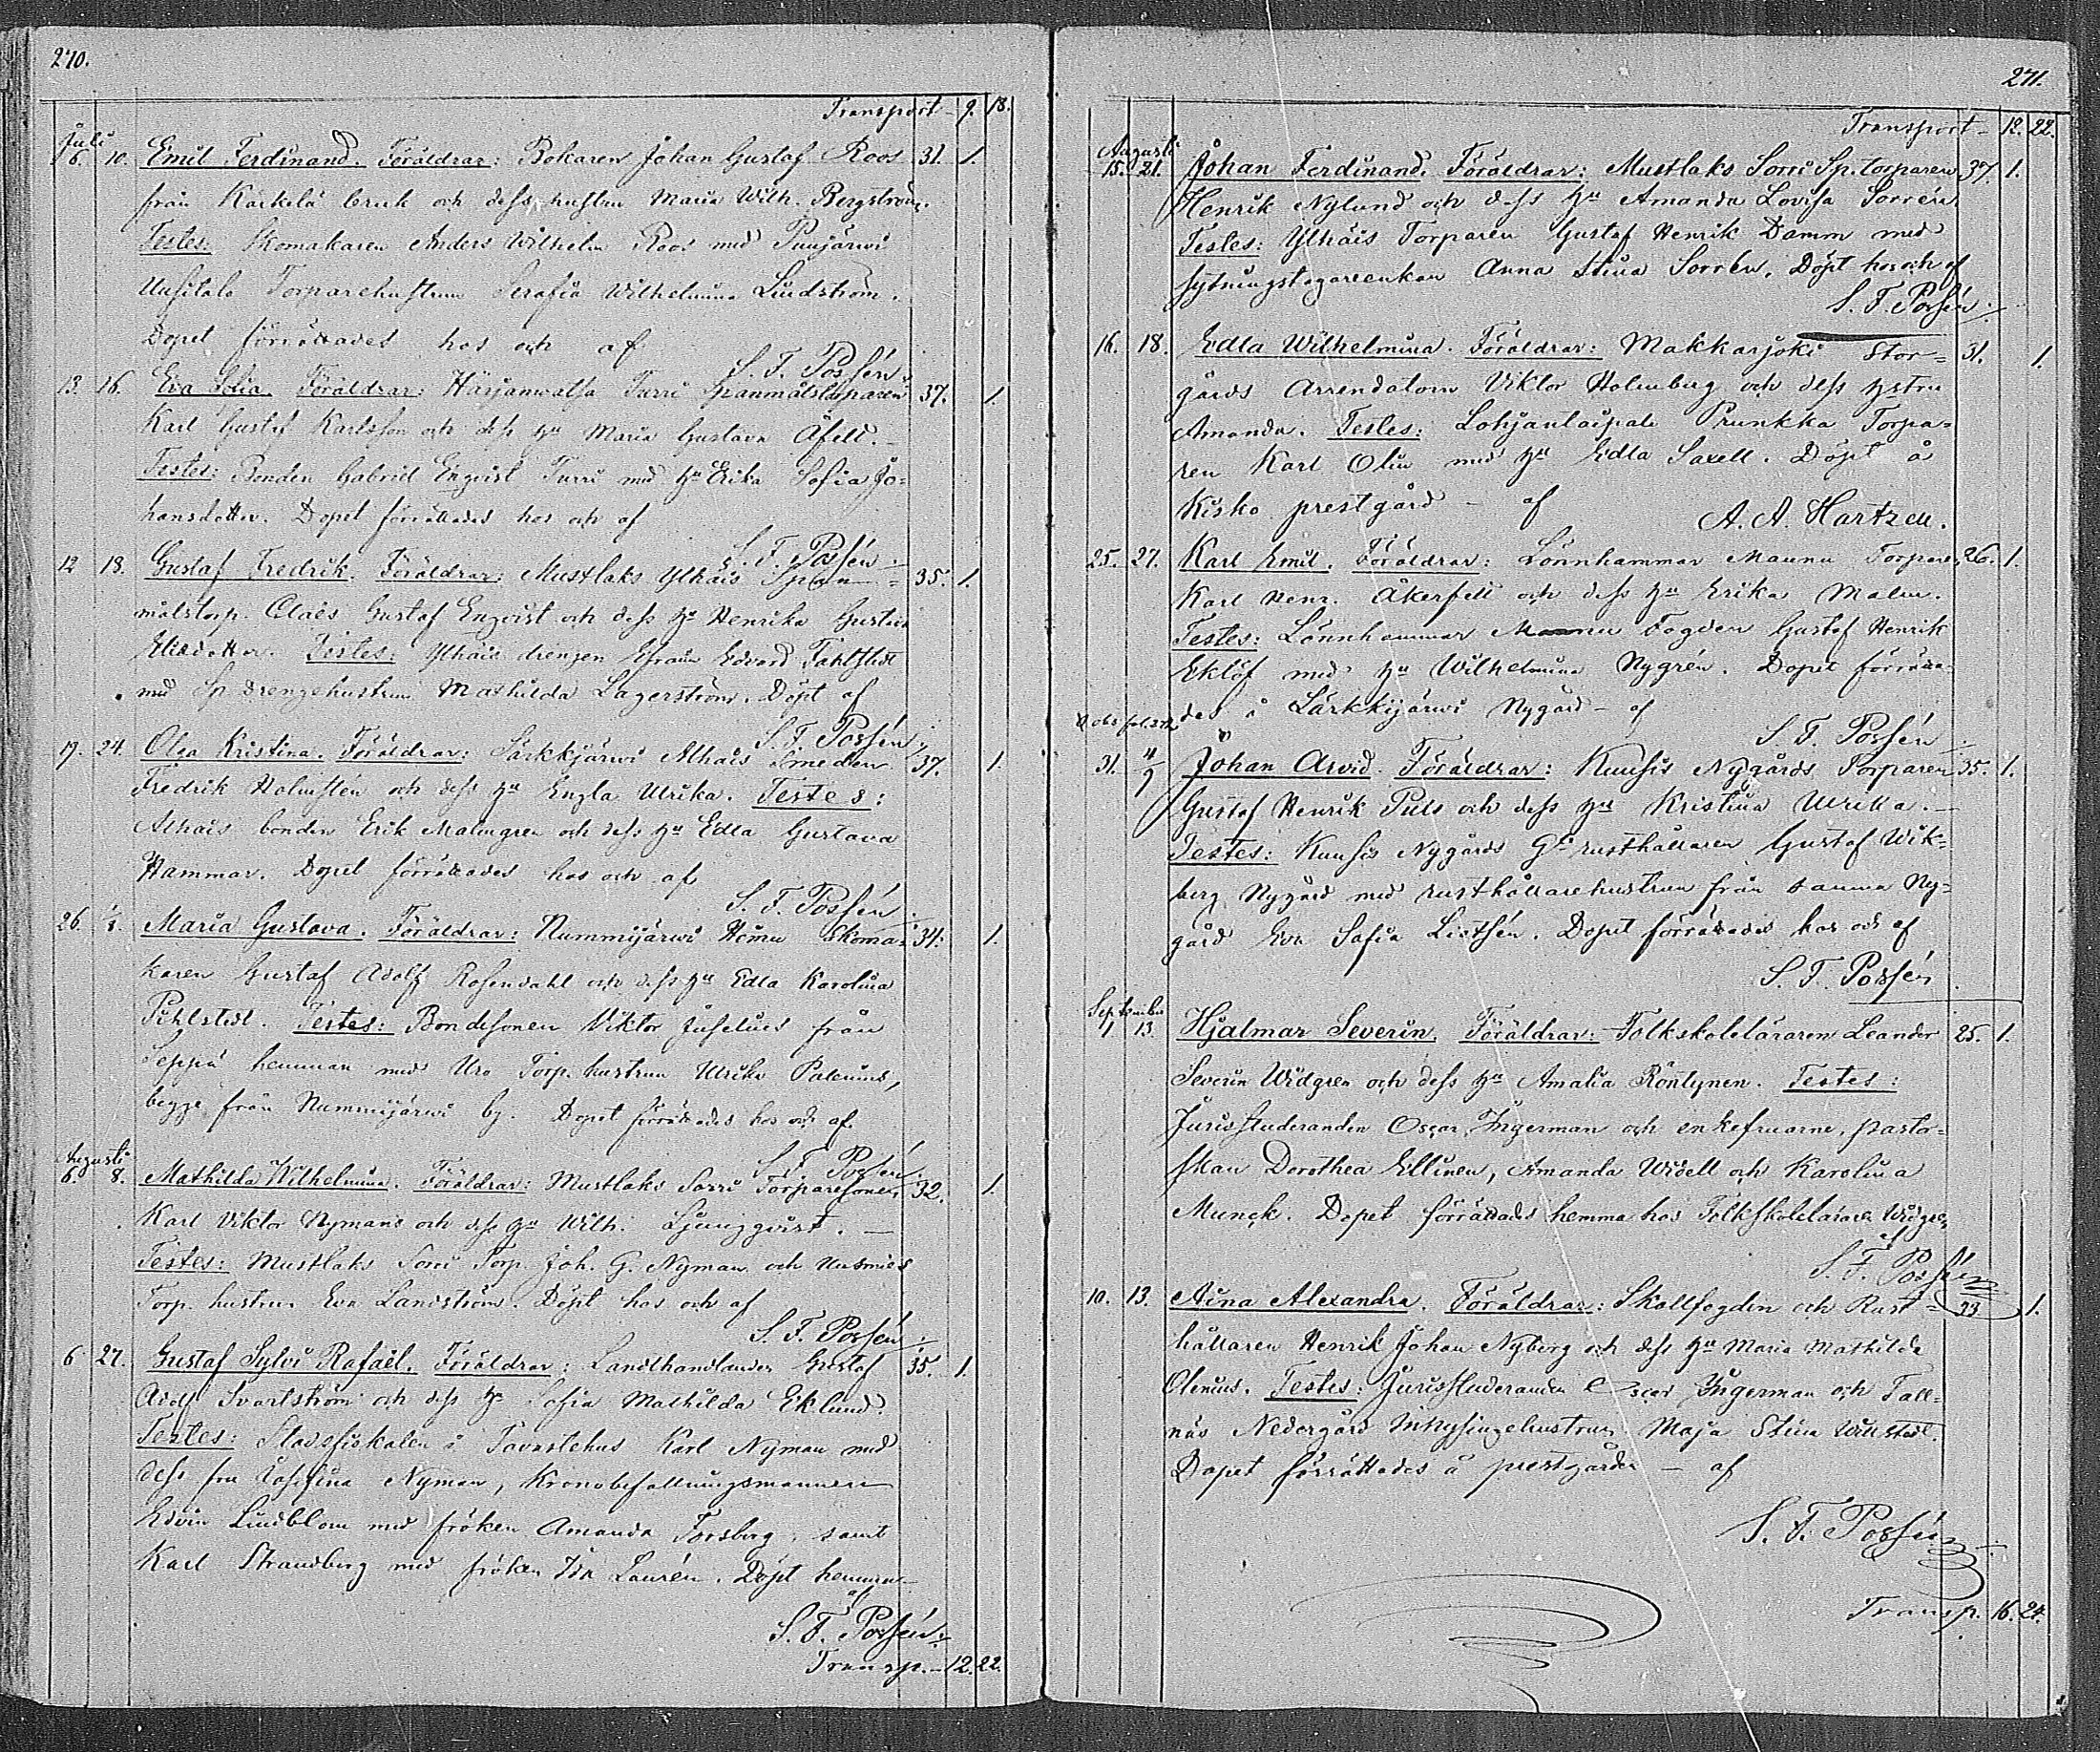 270.
Transport - 9. 18.
Juli
6. 10. Emil Ferdinand. Föräldrar: Bokaren Johan Gustaf Roos 31. 1.
från Kärkelä bruk och dess hustru Maria Wilh. Bergström.
Testes: Skomakaren Anders Wilhelm Roos med Puujärwi
Uusitalo Torparehustrun Serafia Wilhelmina Lindström.
Dopet förrättades hos och af
S. F. Possén.
13. 16. Eva Sofia. Föräldrar: Härjanwatsa Turri Spanmålstorparen 37. 1.
Karl Gustaf Karlsson och dess hu Maria Gustava Äfell.
Testes: Bonden Gabriel Enqvist Turri med hu Erika Sofia Jo=
hansdotter. Dopet förrättades hos och af
S. F. Possén.
12 18. Gustaf Fredrik. Föräldrar: Mustlaks Ylhäis Span= 35. 1.
målstorp. Claës Gustaf Enqvist och dess hu Henrika Gustava
Elisdotter. Testes: Ylhäis drengen Efraim Edvard Fahlstedt
med Sp. drengehustrun Mathilda Lagerström. Döpt af
S. F. Possén.
19. 24. Olga Kristina. Föräldrar: Särkkjärwi Alhais Smeden 37. 1.
Fredrik Holmstén och dess hu Engla Ulrika. Testes:
Alhais bonden Erik Malmgren och dess hu Edla Gustava
Hammar. Dopet förrättades hos och af
S. F. Possén.
26. 1/8. Maria Gustava. Föräldrar: Nummijärwi Heimu Skoma= 34. 1.
karen Gustaf Adolf Rosendahl och dess hu Edla Karolina
Pihlstedt. Testes: Bondesonen Viktor Juselius från
Seppä hemman med Uro Torp. hustrun Ulrika Palenius,
begge från Nummijärwi by. Dopet förrättades hos och af
S. F. Possén.
Augusti
6. 8. Mathilda Wilhelmina. Föräldrar: Mustlaks Sorri Torparesonen 32. 1.
Karl Viktor Nymans och dess hu Wilh. Ljungqvist. —
Testes: Mustlaks Sorri Torp. Joh. G. Nyman och Uusmies
Torp. hustrun Eva Landström. Döpt hos och af
S. F. Possén.
6 27. Gustaf Sylvi Rafaël. Föräldrar: Landthandlanden Gustaf 35. 1.
Adolf Svartström och dess hu Sofia Mathilda Eklund.
Testes: Stadsfiskalen i Tavastehus Karl Nyman med
dess fru Josefina Nyman, Kronobefallningsmannen
Edvin Lindblom med fröken Amanda Forsberg, samt
Karl Strandberg med fröken Ida Laurén. Döpt hemma
af
S. F. Possén.
Transp. - 12. 22.
271.
Transport - 12. 22.
Augusti
15. 21. Johan Ferdinand. Föräldrar: Mustlaks Sorri Sp. torparen 37. 1.
Henrik Nylund och dess hu Amanda Lovisa Sorrén.
Testes: Ylhäis Torparen Gustaf Henrik Damm med
sytningstagareenkan Anna Stina Sorrén. Döpt hos och af
S. F. Possén.
16. 18. Edla Wilhelmina. Föräldrar: Makkarjoki Stor= 31. 1.
gårds Arrendatorn Viktor Holmberg och dess hstru
Amanda. Testes: Lohjantaipale Prunkka Torpa=
ren Karl Olin med hu Edla Saxell. Döpt å
Kisko prestgård - af
A. A. Hartzell.
25. 27. Karl Emil. Föräldrar: Lönnhammar Maunu Torpare 26. 1.
Karl Henr. Åkerfelt och dess hu Erika Malm.
Testes: Lönnhammar Maunu Fogden Gustaf Henrik
Eklöf med hu Wilhelmina Nygrén. Dopet förrätta=
des å Särkkijärwi Nygård - af
S. F. Possén.
31. 4/9 Johan Arvid. Föräldrar: Kuusis Nygårds Torparen 35. 1.
Gustaf Henrik Puls och dess hu Kristina Ulrika. —
Testes: Kuusis Nygårds Gd rusthållaren Gustaf Wik=
berg Nygård med rusthållarehustrun från samma Ny=
gård Eva Sofia Listhén. Dopet förrättades hos och af
S. F. Possén
September
1. 13. Hjalmar Severin. Föräldrar: Folkskoleläraren Leander 25. 1.
Severin Widgren och dess hu Amalia Röntynen. Testes:
Jurisstuderanden Oscar Ingerman och enkefruarne, pasto=
rskan Dorothea Ellinen, Amanda Widell och Karolina
Munck. Dopet förrättades hemma hos Folkskoleläraren Widgren
af
S. F. Possén
10. 13. Aina Alexandra. Föräldrar: Skallfogden och Rust= 23 1.
hållaren Henrik Johan Nyberg och dess hu Maria Mathilda
Olenius. Testes: Jurisstuderanden Oscar Ingerman och Tall=
näs Nedergård Inhysingehustrun Maja Stina Willstedt.
Dopet förrättades å prestgården - af
S. F. Possén
Transp. 16. 24.